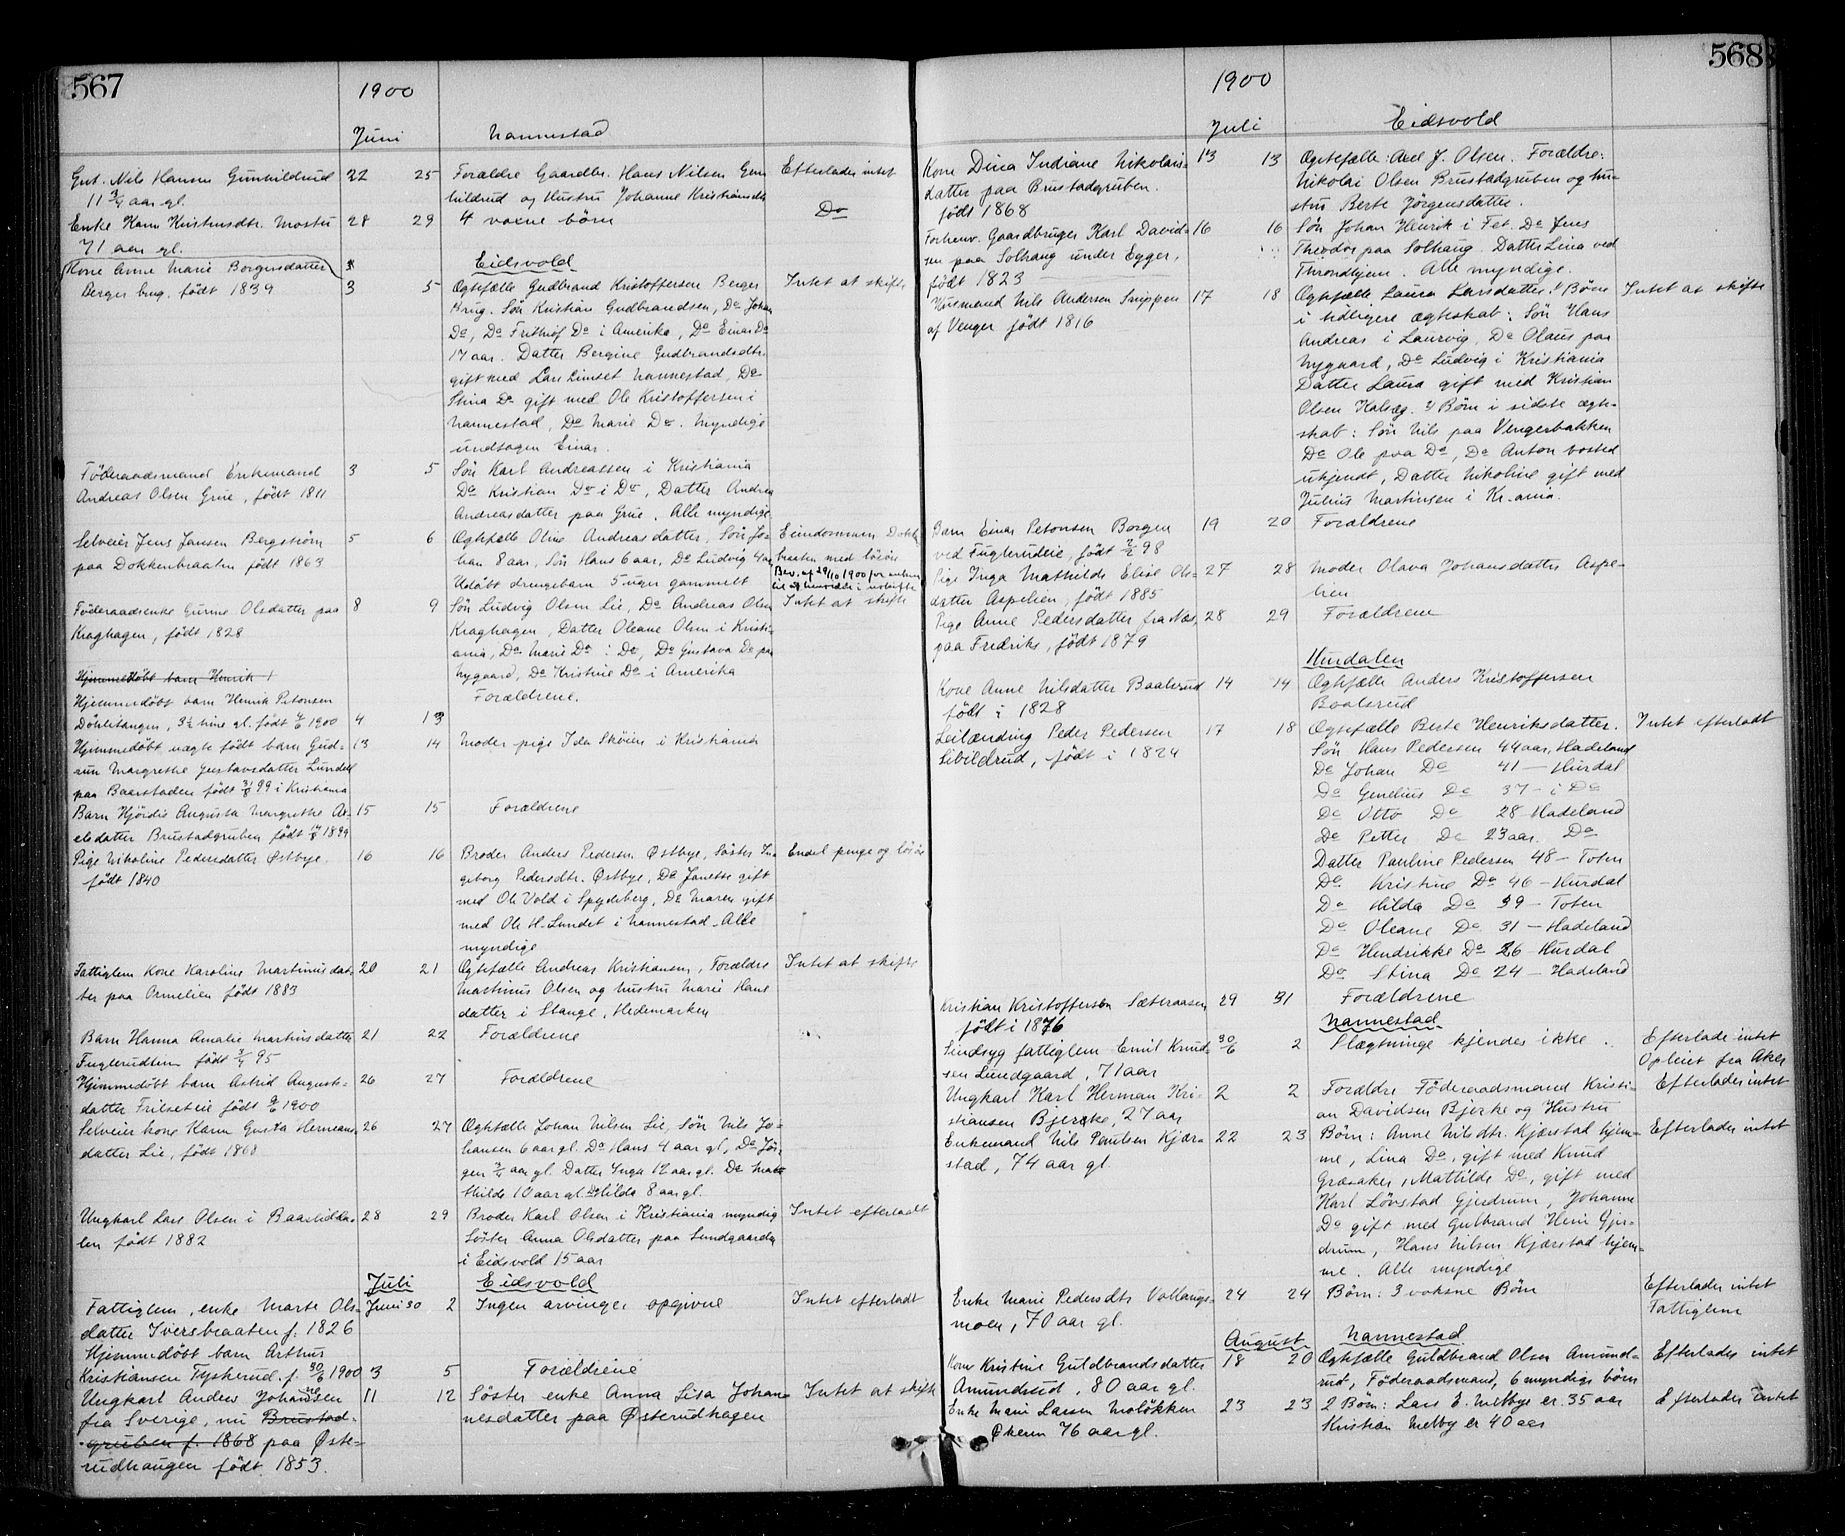 567
1900
Juni
Nannestad
Gut. Nils Hansen Gunhildrud 22 25 Forældre Gaardbr. Hans Nilsen Gun Efterlader intet
11 3/4 aar gl.
hildrud og Hustru Johanne Kristiansdtr
Enke Karn Kristensdtr. Mostu 28 29 4 voxne börn Do
71 aar gl.
Eidsvold
Kone Anne Marie Borgersdatter
Berger brug. født 1839 3 5 Ægtefælle Gudbrand Kristoffersen Berger Intet at skifte
Brug. Sön Kristian Gudbrandsen, Do Johan
Do, Do Frithiof Do i Amerika, Do Einar Do
17 aar. Datter Bergine Gudbrandsdtr.
gift med Lars Limset Nannestad, Do
Stina Do gift med Ole Kristoffersen i
Nannestad, Do Marie Do. Myndige
undtagen Einar.
Föderaadsmand Enkemand 3 5 Sön Karl Andreassen i Kristiania
Andreas Olsen Grue, født 1811 Do Kristian Do i Do, Datter Andrea
Andreasdatter paa Grue. Alle myndige
Selveier Jens Jansen Bergstrøm 5 6 Ægtefælle Oline Andreasdatter, Sön Jo- Eiendommen Dokk
paa Dokkenbraaten født 1863 han 8 aar, Sön Hans 6 aar, Do Ludvig 4 aar braaten med løsöre
Udöbt drengebarn 5 uger gammelt
Bev. af 29/10 1900 for enken
til at hensidde i uskifte
Föderaadsenke Gurine Olsdatter paa 8 9 Sön Ludvig Olsen Lie, Do Andreas Olsen Intet at skifte
Kraghagen, født 1828 Kraghagen, Datter Oleane Olsen i Kristi-
ania, Do Marie Do i Do, Do Gustava Do paa
Nygaard, Do Kristine Do i Amerika
Hjemmedöbt barn Henrik
Hjemmedöbt barn Henrik Petersen Forældrene.
Döhlitangen, 3 1/2 time gl. født 4/6 1900 4 13
Hjemmedöbt uægte født barn Gud- 13 14 Moder pige Ida Sköien i Kristiania
run Margrethe Gustavsdatter Lundell
paa Baarstaden født 99 i Kristiania
Barn Hjördis Augusta Margrethe Ax- 15 15 Forældrene
elsdatter Brustadgruben født 1899
Pige Nikoline Pedersdatter Østbye. 16 16 Broder Anders Pedersen Østbye, Söster In- Endel penge og lösöre
født 1840 geborg Pedersdtr. Østbye, Do Janette gift
med Ole Vold i Spydeberg, Do Maren gift
med Ole H. Lundet i Nannestad. Alle
myndige
Fattiglem Kone Karoline Martinusdat- 20 21 Ægtefælle Andreas Kristiansen, Forældre Intet at skifte
ter paa Ormelien født 1883 Martinus Olsen og Hustru Marie Hans
datter i Stange, Hedemarken
Barn Hanna Amalie Martinusdatter 21 22 Forældrene
Fuglerudlien født 95
Hjemmedöbt barn Astrid August- 26 27 Forældrene
datter Frilseteie født 1900
Selveier kone Karen Gusta Hermans- 26 27 Ægtefælle Johan Nilsen Lie, Sön Nils Jo-
datter Lie, født 1868 hansen 6 aar gl. Do Hans 4 aar gl, Do Jör-
gen aar gl. Datter Inga 12 aar gl. Do Mat
thilde 10 aar gl. Do Hilda 8 aar gl.
Ungkarl Lars Olsen i Baarliddal- 28 29 Broder Karl Olsen i Kristiania myndig Intet efterladt
len født 1882 Söster Anna Olsdatter paa Lundgaarden
i Eidsvold 15 aar
Juli
Eidsvold
Fattiglem, enke Marte Ols- Juni 30 2 Ingen arvinger opgivne Intet efterladt
datter Iversbraaten f. 1826
Hjemmedöbt barn Arthur
Kristiansen Tyskerud. f. 30/6 1900 3 5 Forældrene
Ungkarl Anders Johansen 11 12 Söster enke Anna Lisa Johan- Intet at skifte
fra Sverige, nu Brustad- nesdatter paa Østerudhagen
gruben f. 1868 paa Øste-
rudhaugen født 1853.
568
1900
Juli
Eidsvold
Kone Dina Indiane Nikolais- 13 13 Ægtefælle: Axel J. Olsen. Forældre:
datter paa Brustadgruben. Nikolai Olsen Brustadgruben og hu-
født 1868 stru Berte Jörgensdatter.
Forhenv. Gaardbruger Karl David- 16 16 Sön Johan Henrik i Fet. Do Jens
sen paa Solhaug under Egger, Theodor paa Solhaug. Datter Lina ved
født 1823 Throndhjem. Alle myndige.
Husmand Nils Andersen Snippen 17 18 Ægtefælle Laura Larsdatter. 1/ Börn Intet at skifte
af Venger født 1816 i tidligere ægteskab: Sön Hans
Andreas i Laurvig, Do Olaus paa
Nygaard, Do Ludvig i Kristiania
Datter Laura gift med Kristian
Olsen Halsæg. 2/ Börn i sidste ægte-
skab: Sön Nils paa Vengerbakken
Do Ole paa Do, Do Anton bosted
ukjendt, Datter Nikoline gift med
Julius Martinsen i Kr.ania.
Barn Einar Petersen Borgen 19 20 Forældrene
ved Fuglerudeie, født 98
Pige Inga Mathilde Elise Ols- 27 28 Moder Olava Johansdatter Aspe-
datter Aspelien, født 1885 lien
Pige Anne Pedersdatter fra Næs, 28 29 Forældrene
paa Fredriks, født 1879
Hurdalen
Kone Anne Nilsdatter Baalsrud 14 14 Ægtefælle Anders Kristoffersen
født i 1828 Baalsrud
Leilænding Peder Pedersen 17 18 Ægtefælle Berte Henriksdatter. Intet efterladt
Sibildrud, født i 1824 Sön Hans Pedersen 44 aar, Hadeland
Do Johan Do 41 — Hurdal
Do Genelius Do 37 - i Do
Do Otto Do 28 Hadeland
Do Petter Do 23 aar. Do
Datter Pauline Pedersen 48 — Toten
Do Kristine Do 46 — Hurdal
Do Hilda Do 39 — Toten
Do Oleane Do 31 — Hadeland
Do Hendrikke Do 26 Hurdal
Do Stina Do 24 — Hadeland
Kristian Kristoffersen Sæteraasen 29 31 Forældrene
født i 1876
Nannestad
Sindsyg fattiglem Emil Knud- 30/6 2 Slægtninge kjendes ikke. Efterlader intet
sen Lundgaard, 71 aar Opleiet fra Aker
Ungkarl Karl Herman Kri- 2 2 Forældre Föderaadsmand Kristi- Efterlader intet
stiansen Bjercke, 27 aar an Davidsen Bjerke og Hustru
Enkemand Nils Paulsen Kjær- 22 23 Börn: Anne Nilsdtr. Kjærstad hjem- Efterlader intet
stad, 74 aar gl. me, Lina Do, gift med Knud
Græsaker, Mathilde Do, gift med
Karl Lövstad Gjerdrum, Johanne
Do gift med Gulbrand Heni Gjer-
drum, Hans Nilsen Kjærstad hjem-
me. Alle myndige
Enke Marie Pedersdtr Vollaugs- 24 24 Börn: 3 voksne Börn Efterlader intet
moen, 70 aar gl. Fattiglem
August
Nannestad
Kone Kristine Guldbrandsdatter 18 20 Ægtefælle Guldbrand Olsen Amund- Efterlader intet
Amundrud, 80 aar gl. rud, Föderaadsmand, 6 myndige börn
Enke Marie Larsen Moløkken 23 23 2 Börn: Lars E. Melbye er 35 aar Efterlader Intet
Økeren 76 aar gl. Kristian Melby er 40 aar